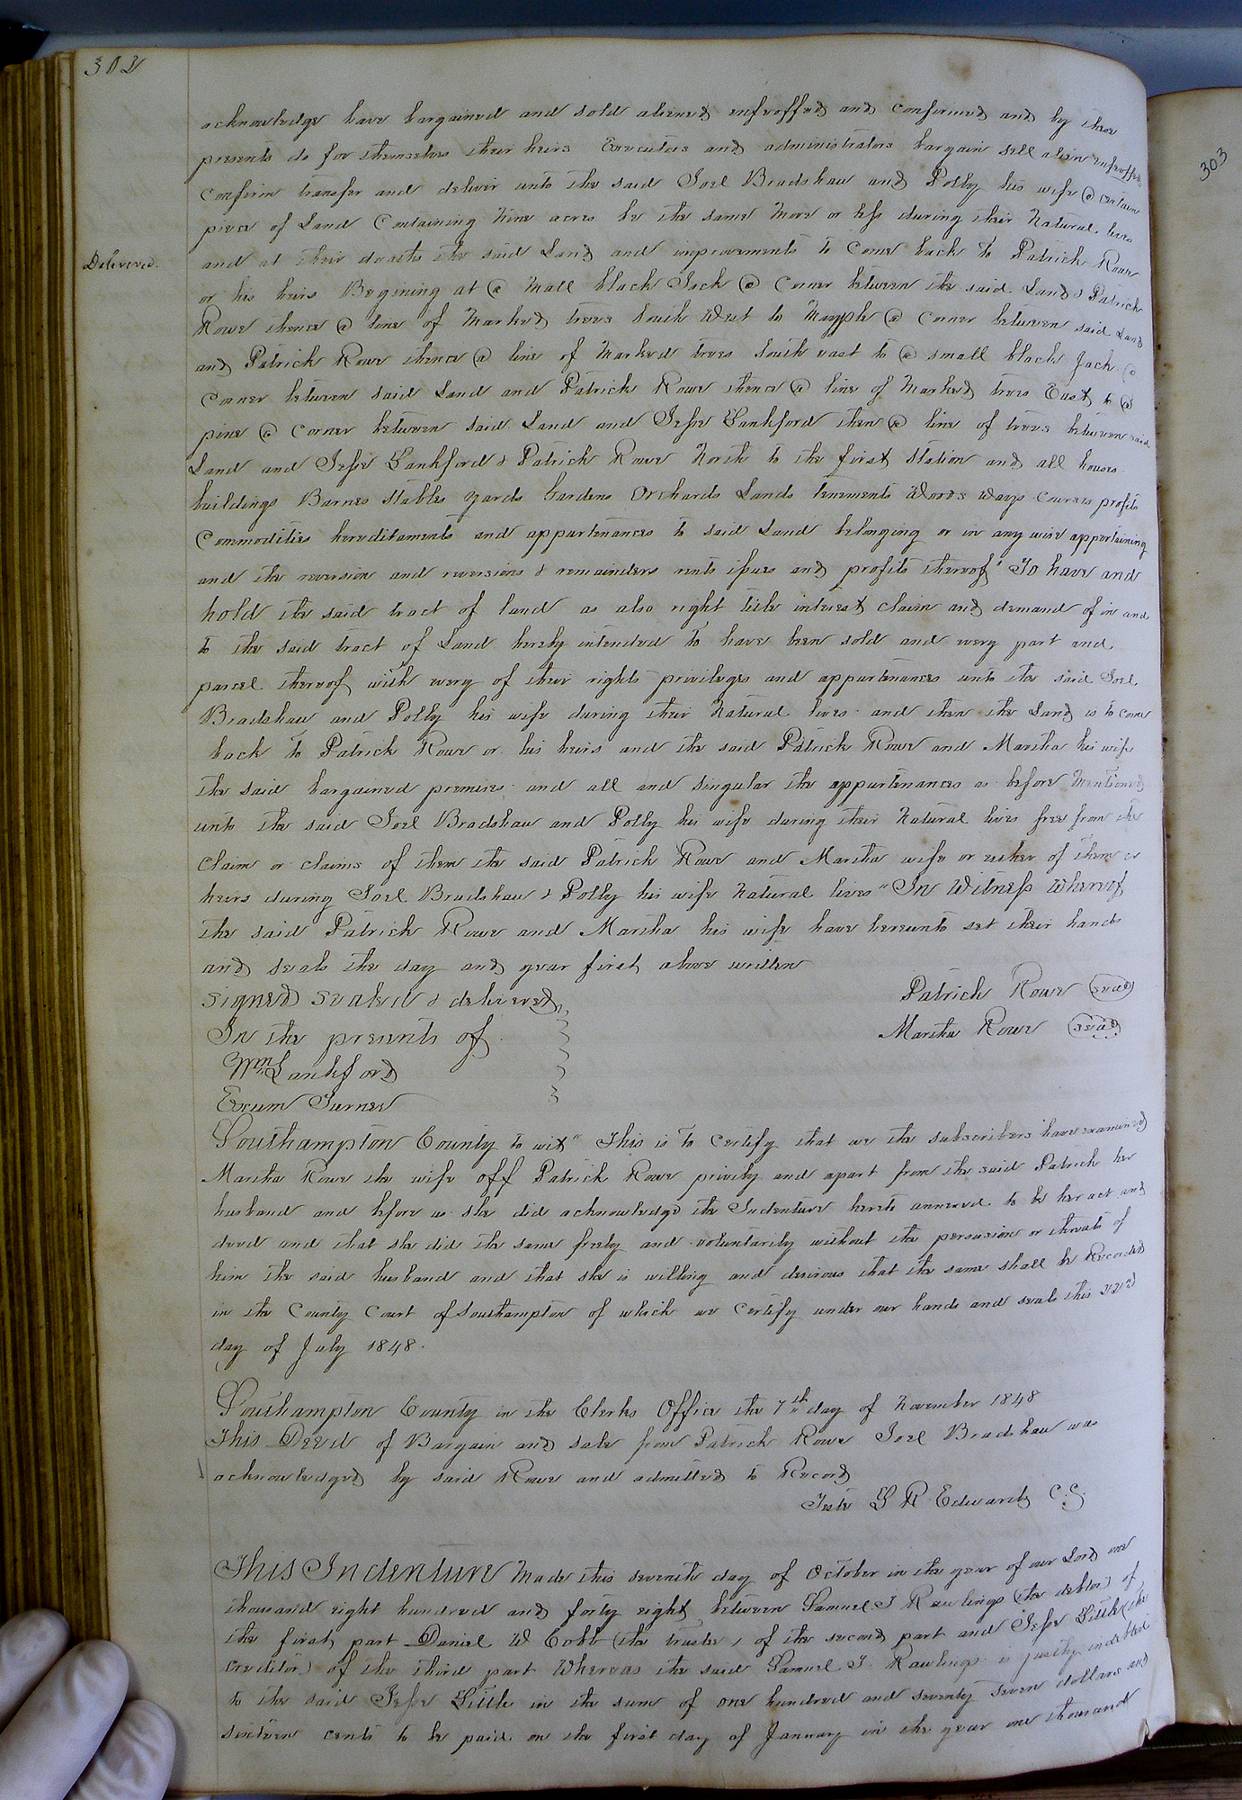 302
acknowledge have bargained and sold aliened enfeoffed and confirmed and by these
presents do for themselves their heirs Executors and administrators bargain sell alien enfeoffe
Confirm transfer and deliver unto the said Joel Bradshaw and Polly his wife @ certain
piece of Land Containing Nine acres be the same More or less during their Natural lives
Delivered.
and at their deaths the said Land and improvements to Come back to Patrick Rowe
or his heirs Begining at @ Mall black Jack @ Corner between the said Land & Patrick
Rowe thence @ line of Marked trees South West to Mapple @ Corner between said Land
and Patrick Rowe thence @ line of Marked trees South east to @ small black Jack @
Corner between said Land and Patrick Rowe thence @ line of Marked trees East to @
pine @ Corner between said Land and Jesse Lankford then @ line of trees between said
Land and Jesse Lankford & Patrick Rowe North to the first Station and all houses
buildings Barnes Stables yards Gardens Orchards Lands tenements Woods ways Courses profits
Commodities hereditaments and appurtenances to said Land belonging or in any wise appertaining
and the reversion and reversions & remainders rents issues and profits thereof" To have and
hold the said tract of land as also right title interest claim and demand of in and
to the said tract of Land hereby intended to have been sold and every part and
parcel thereof with every of their rights privileges and appurtenances unto the said Joel
Bradshaw and Polly his wife during their Natural lives and then the Land is to come
back to Patrick Rowe or his heirs and the said Patrick Rowe and Martha his wife
the said bargained premises and all and singular the appurtenances as before Mentioned
unto the said Joel Bradshaw and Polly his wife during their Natural lives free from the
Claim or claims of them the said Patrick Rowe and Martha wife or either of them or
heirs during Joel Bradshaw & Polly his wife Natural lives" In Witness Whereof
the said Patrick Rowe and Martha his wife have hereunto set their hands
and seals the day and year first above written
signed sealed & delivered
Patrick Rowe (seal)
In the presents of
Martha Rowe (seal)
Wm. Lankford
Exum Turner
Southampton County to wit" This is to Certify that we the subscribers have examined
Martha Rowe the wife off Patrick Rowe privily and apart from the said Patrick her
husband and before us she did acknowledge the Indenture hereto annexed to be her act and
deed and that she did the same freely and voluntarily without the persuasion or threats of
him the said husband and that she is willing and desirous that the same shall be Recorded
in the County Court of Southampton of which we Certify under our hands and seals this 22nd
day of July 1848.
Southampton County in the Clerks Office the 7th day of November 1848
This Deed of Bargain and sale from Patrick Rowe Joel Bradshaw was
acknowledged by said Rowe and admitted to Record
Teste L R Edwards C.S.
This Indenture Made this seventh day of October in the year of our Lord one
thousand eight hundred and forty eight between Samuel J Rawlings (the debtor) of
the first part Daniel W Cobb (the trustee) of the second part and Jesse Little (the
Creditor) of the third part Whereas the said Samuel J. Rawlings is justly indebted
to the said Jesse Little in the sum of one hundred and seventy seven dollars and
sixteen cents to be paid on the first day of January in the year one thousand
303